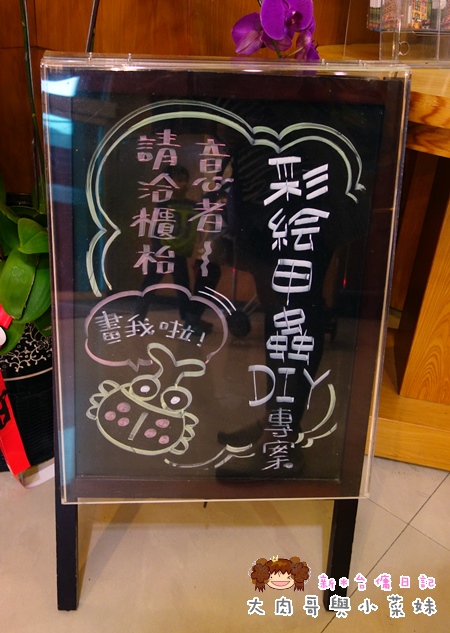 彩絵甲蟲DIY專案
意者~
請洽櫃枱
畫我啦!
新*台僑日記
大肉哥與小菜妹